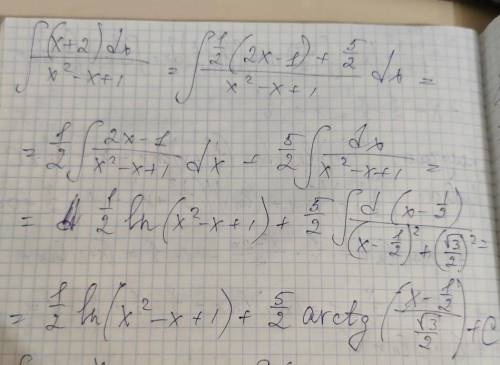 ∫ (x+2) dx / (x² - x + 1) = ∫ (½(2x-1) + 5/2) / (x² - x + 1) dx =
= ½ ∫ (2x-1) / (x² - x + 1) dx + 5/2 ∫ dx / (x² - x + 1) =
= ½ ln(x² - x + 1) + 5/2 ∫ d(x - ½) / ((x - ½)² + (√3/2)²) =
= ½ ln(x² - x + 1) + 5/2 arctg((x - ½) / (√3/2)) + C